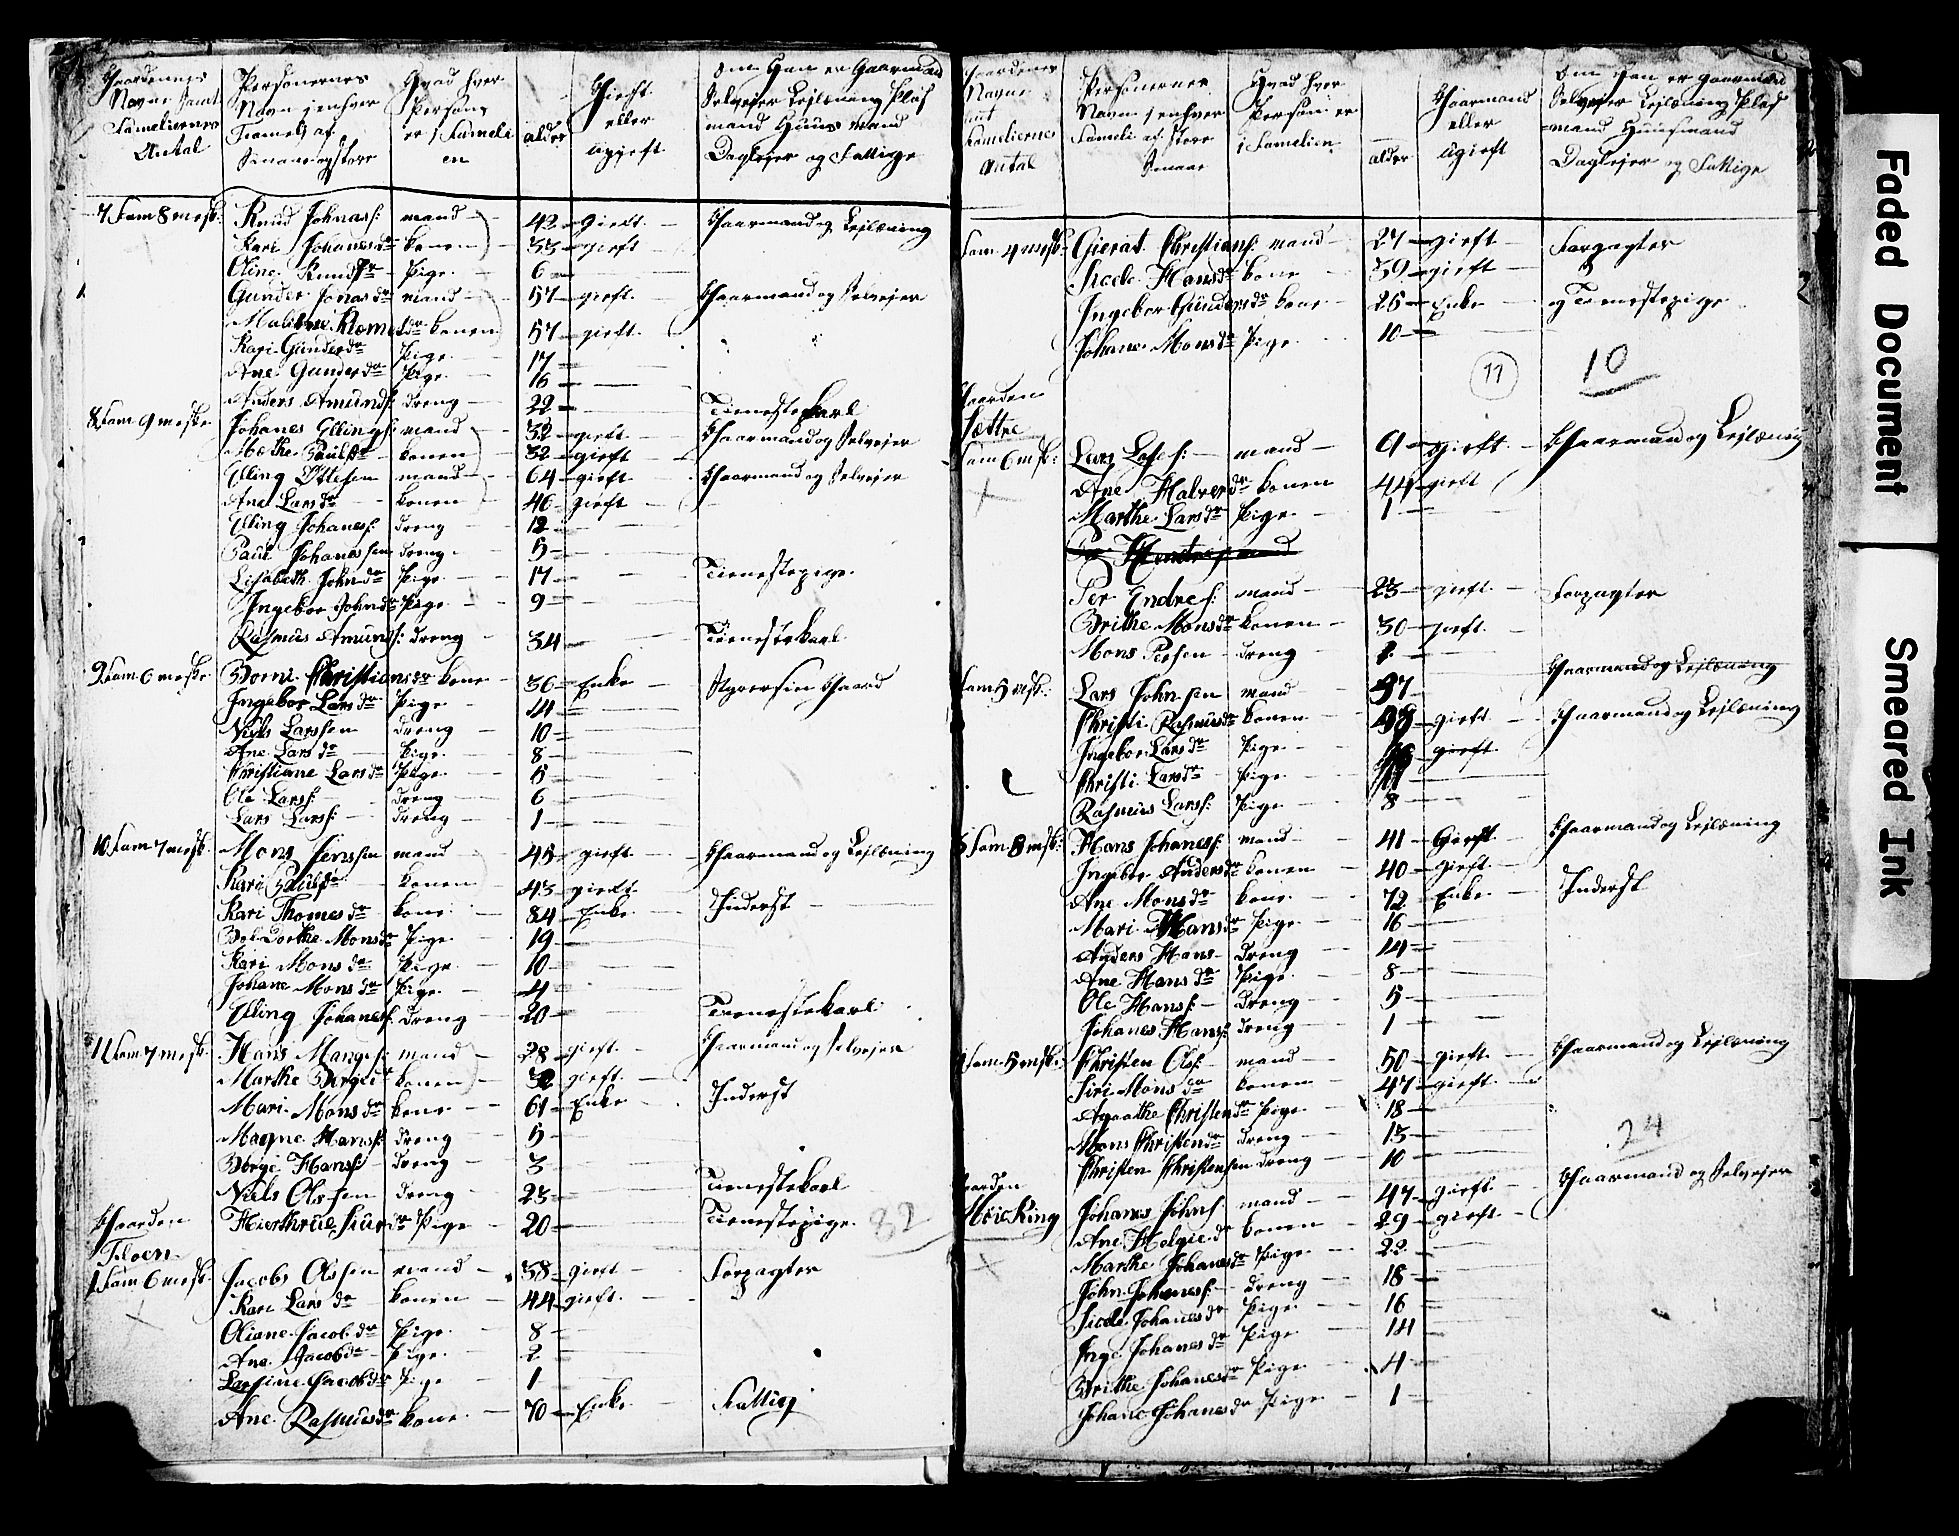 Gaardenes Navne samt Fameliernes Antal | Personernes Navn i enhver Fameli af Smaae og Store | Hvad hver Person er i Fameli en | alder | Giecht eller ugieft | Om Han er Gaarmand Selveier Lejlening Plas mand Huus mand Daglejer og Fattige
7 Fam 8 mesk: Knud Johnass: mand 42 gieft Gaarmand og Lejlening
Kari Johanesdr konen 33 gieft
Oline Knudsdr Pige 6
Gunder Jonasdr mand 57 gieft Gaarmand og Selvejer
konen 57 gieft
Kari Gunderdr Pige 17
Ane Gunderdr Pige 16
Anders Amunds: dreng 22 Tienestekarl
8 Fam 9 meske Johanes Ellings: mand 32 gieft Gaarmand og Selvejer
Mothe Paulsdr konen 32 gieft
Elling Ottesen mand 64 gieft Gaarmand og Selvejer
Ane Larsdr konen 46 gieft
Elling Johaness: dreng 12
Paul Johanessen dreng 5
Lisabeth Johndr Pige 17 Tienestepige
Ingebor Johndr Pige 9
Rasmus Amunds: dreng 34 Tienestekarl
9 Fam 6 meske Borni Christiansdr kone 36 Enke Styrer sin Gaard
Ingebor Larsdr Pige 14
Niels Larssen dreng 10
Ane Larsdr Pige 8
Christiane Larsdr Pige 5
Ole Larss: dreng 6
Lars Larss: dreng 1
10 Fam 7 mesk: Mons Jenssen mand 45 gieft Gaarmand og Lejlening
Kari Paulsdr konen 43 gieft
Kari Thomesdr kone 84 Enke Inderst
Bol Dorthe Monsdr Pige 19
Kari Monsdr Pige 10
Johane Monsdr Pige 4
Elling Johaness: dreng 20 Tienestekarl
11 Fam 7 mesk: Hans Mangss: mand 28 gieft Gaarmand og Selvejer
Marthe Børgedr konen 32 gieft
Mari Monsdr kone 61 Enke Inderst
Magne Hanss: dreng 5
Børge Hanss: dreng 3
Niels Olssen dreng 23 Tienestekarl
Hierthrue Siurdr Pige 20 Tienestepige 82
Gaarden
Floen
1 Fam 6 mesk: Jacobs Olssen mand 38 gieft Forpagter
Kari Larsdr konen 44 gieft
Oliane Jacobdr Pige 8
Ane Jacobdr Pige 2
Larsine Jacobdr Pige 1
Ane Rasmusdr kone 70 Enke Fattig
Gaardenes Navne samt Fameliernes Antal | Personernes Navn i enhver Fameli af Store Smaae | Hvad hver Person er i Famelien | alder | Gaarmand eller ugieft | Om Han er Gaarmand Selvejer Lejlening Plasmand Huusmand Daglejer og Fattige
Fam 4 mesk: Gierat Christians: mand 27 gieft Forpagter
Siecle Hansdr kone 39 gieft
Ingebor Gundersdr kone 25 Enke og Tienestepige
Johane Monsdr Pige 10
11 10
Gaarden
Sættre
Fam 6 mesk: Lars Lases: mand 9 gieft Gaarmand og Lejlening
Ane Halverdr konen 44 gieft
Marthe Larsdr Pige 1
Per Endres: mand 23 gieft Forpagter
Brithe Monsdr konen 30 gieft
Mons Persen dreng 1
Gaarmand og Lejlening
Fam 5 mesk: Lars Johnsen mand 37
Christi Rasmusdr konen 38 gieft Gaarmand og Lejlening
Ingebor Larsdr Pige gieft
Christi Larsdr Pige 11
Rasmus Larss: Pige 8
3 Fam 8 mesk: Hans Johaness: mand 41 Gieft Gaarmand og Lejlening
Ingebor Andersdr konen 40 gieft
Ane Monsdr kone 72 Enke Inderst
Mari Hansdr Pige 16
Anders Hans dreng 14
Ane Hansdr Pige 8
Ole Hanss: dreng 5
Johanes Hanss: dreng 1
Fam 5 mesk: Christen Olss: mand 50 gieft Gaarmand og Lejlening
Siri Monsdr konen 47 gieft
Agaathe Christendr Pige 18
Mons Christendr dreng 13 24
Christen Christensen dreng 10
Gaarden
Høieking Johanes Johns: mand 47 gieft Gaarmand og Selvejer
Ane Helgiedr konen 29 gieft
Marthe Johanesdr Pige 22
John Johaness: dreng 18
Siecle Johanesdr Pige 16
Inge Johanesdr Pige 14
Brithe Johanesdr Pige 4
Johane Johanesdr Pige 1
Faded Document
Smeared Ink